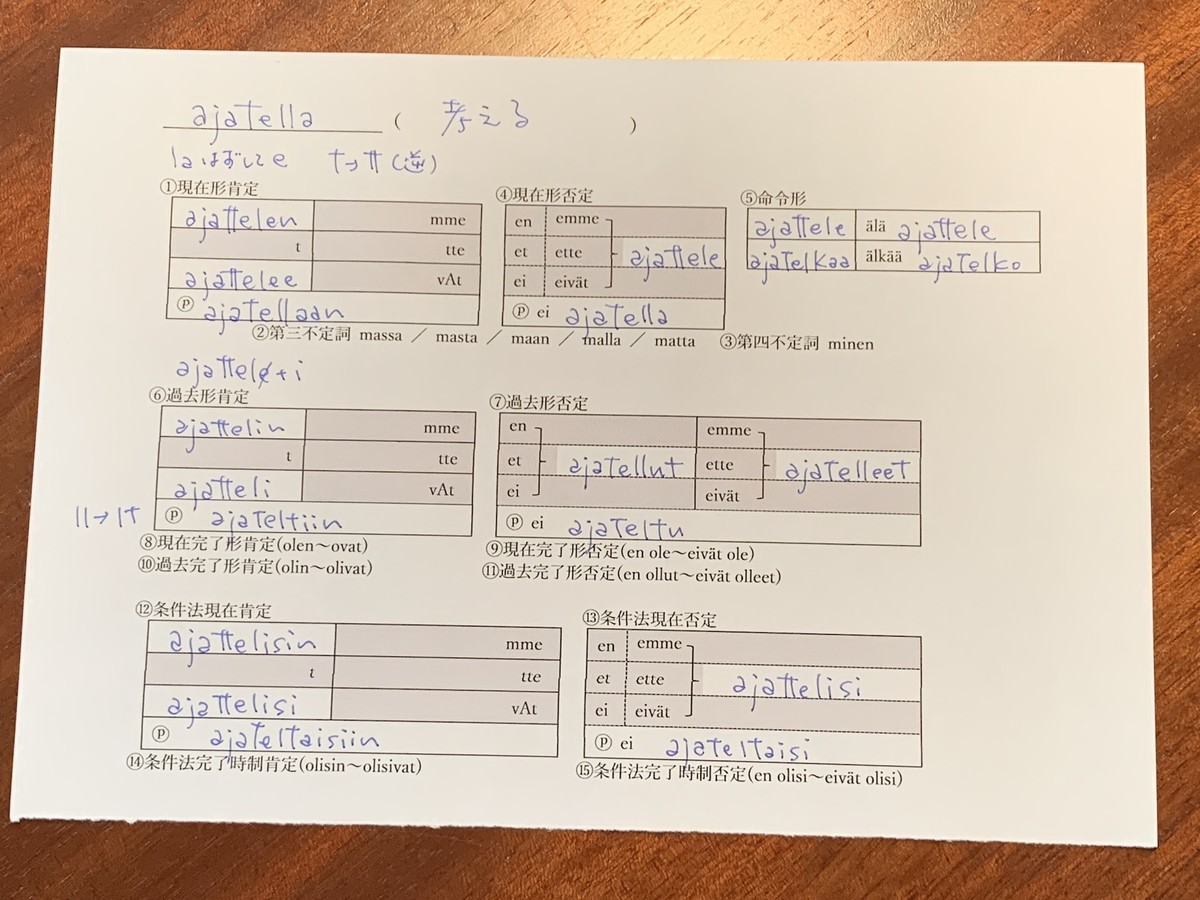 ajatella ( 考える )
laはずしてe t→tt (逆)
①現在形肯定
ajattelen mme
t tte
ajattelee vAt
Ⓟ ajatellaan
④現在形否定
en emme
et ette ajattele
ei eivät
Ⓟ ei ajatella
⑤命令形
ajattele älä ajattele
ajatelkaa älkää ajatelko
②第三不定詞 massa ／ masta ／ maan ／ malla ／ matta ③第四不定詞 minen
ajattele+i
⑥過去形肯定
ajattelin mme
t tte
ajatteli vAt
ll→lt Ⓟ ajateltiin
⑦過去形否定
en emme
et ajatellut ette ajatelleet
ei eivät
Ⓟ ei ajateltu
⑧現在完了形肯定(olen～ovat)
⑩過去完了形肯定(olin～olivat)
⑨現在完了形否定(en ole～eivät ole)
⑪過去完了形否定(en ollut～eivät olleet)
⑫条件法現在肯定
ajattelisin mme
t tte
ajattelisi vAt
Ⓟ ajateltaisiin
⑬条件法現在否定
en emme
et ette ajattelisi
ei eivät
Ⓟ ei ajateltaisi
⑭条件法完了時制肯定(olisin～olisivat)
⑮条件法完了時制否定(en olisi～eivät olisi)